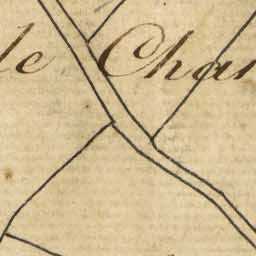 le Char